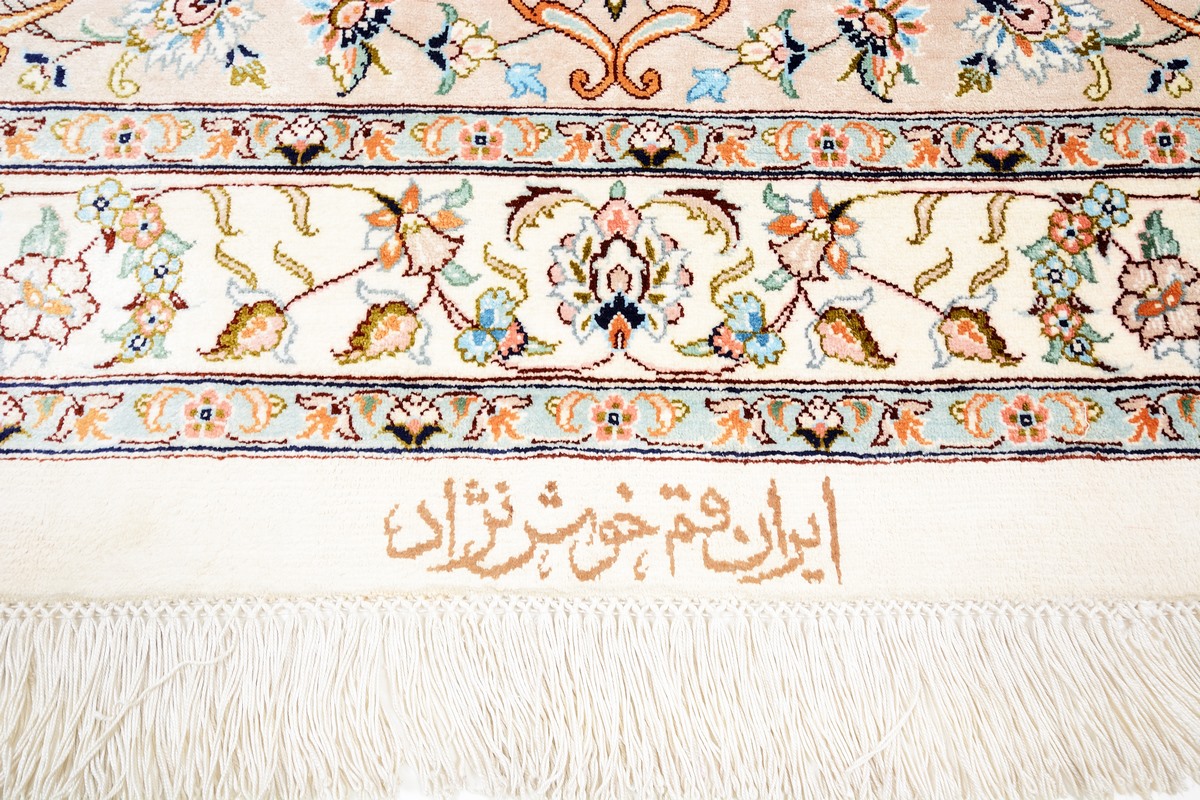 ایران قم خوش نژاد